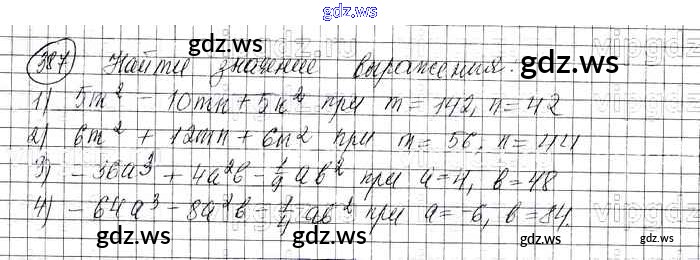 gdz.ws
387 Найти значение выражения:
gdz.ws
gdz.ws
1) 5m² - 10mn + 5n² при m = 142, n = 42
2) 6m² + 12mn + 6n² при m = 56, n = 44
3) -36a³ + 4a²b - 1/9 ab² при a = 4, b = 48
4) -64a³ - 8a²b - 1/4 ab² при a = -6, b = 84.
gdz.ws gdz.ws gdz.ws